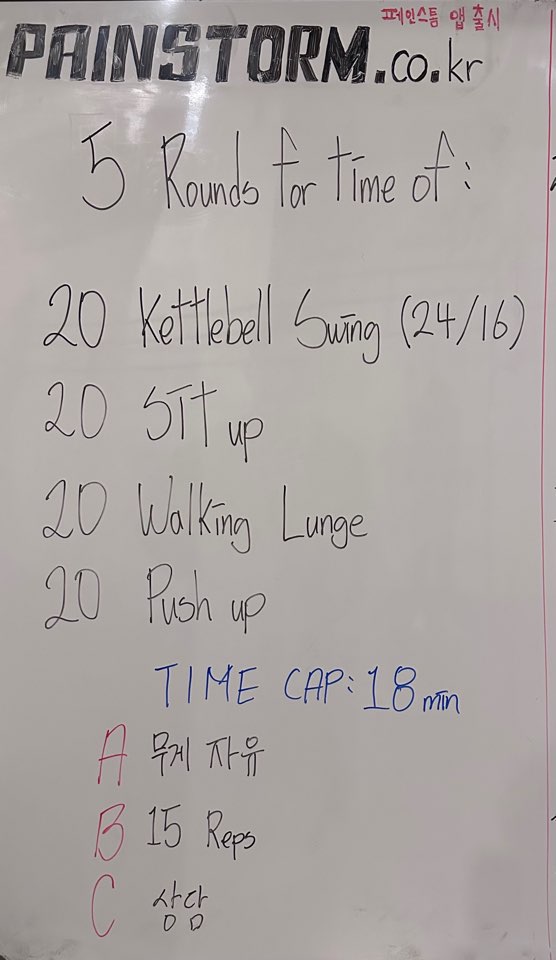 페인스톰 앱 출시
PAINSTORM.co.kr
5 Rounds for time of:
20 Kettlebell Swing (24/16)
20 Sit up
20 Walking Lunge
20 Push up
TIME CAP: 18 min
A 무게 자유
B 15 Reps
C 상담